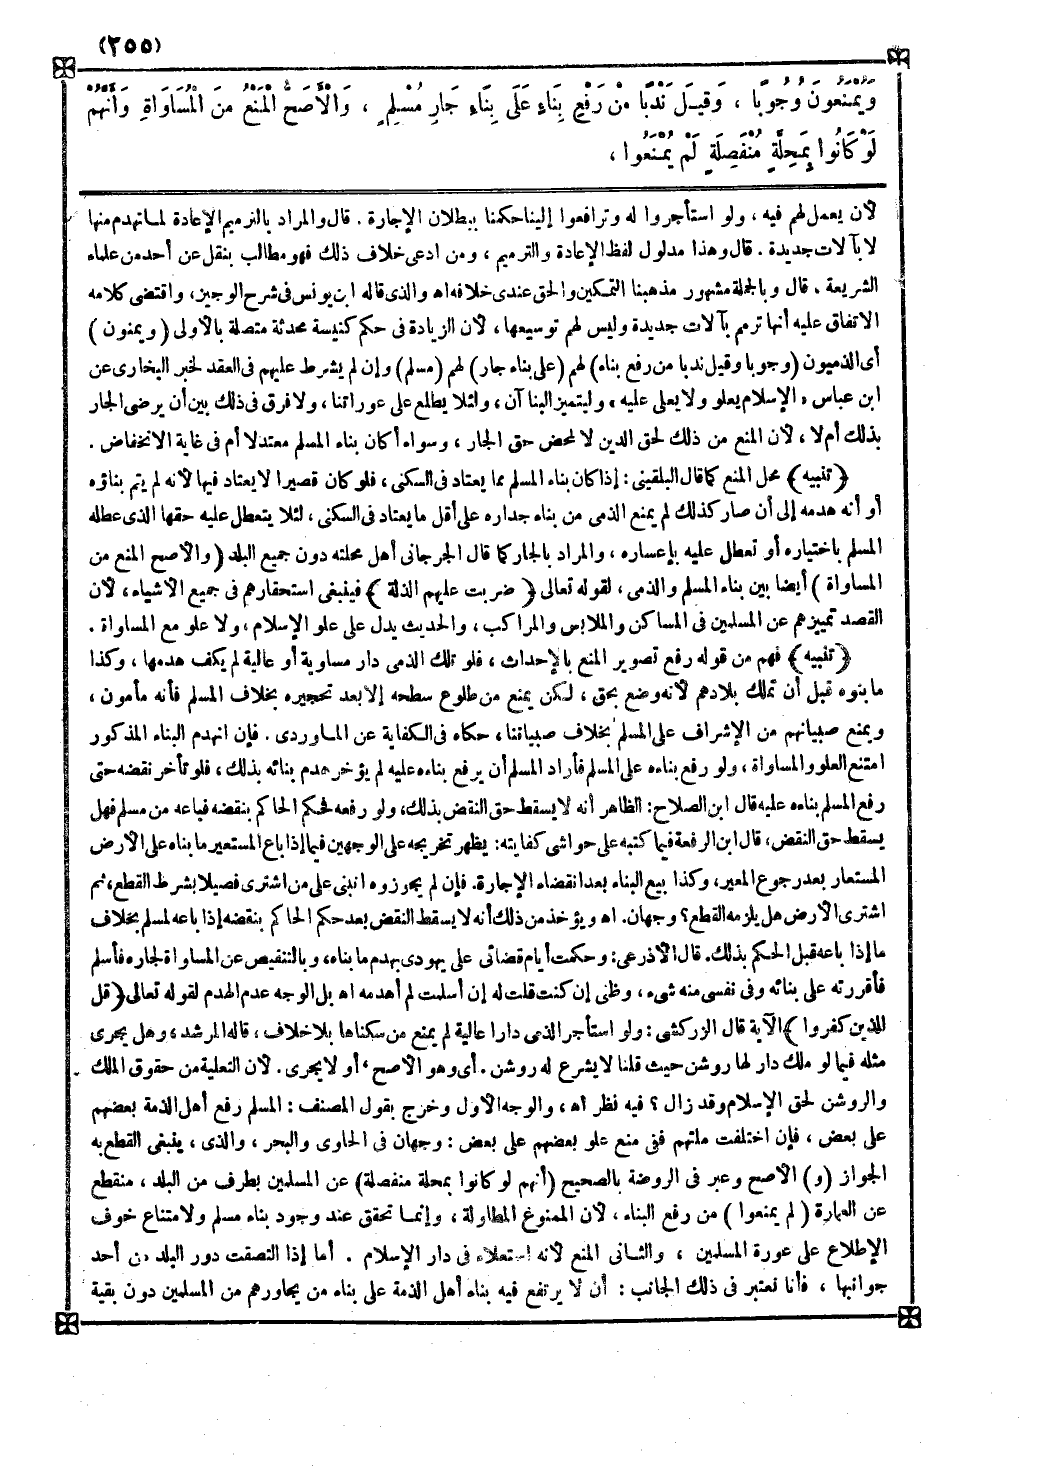 (٢٥٥)
وَيُمْنَعُونَ وُجُوبًا ، وَقِيلَ نَدْبًا مِنْ رَفْعِ بِنَاءٍ عَلَى بِنَاءِ جَارٍ مُسْلِمٍ ، وَالْأَصَحُّ الْمَنْعُ مِنَ الْمُسَاوَاةِ وَأَنَّهُمْ
لَوْ كَانُوا بِمَحِلَّةٍ مُنْفَصِلَةٍ لَمْ يُمْنَعُوا ،
لأن يعمل لهم فيه ، ولو استأجروا له وترافعوا إلينا حكمنا ببطلان الإجارة . قال والمراد بالترميم الإعادة لما تهدم منها
لا بآلات جديدة . قال وهذا مدلول لفظ الإعادة والترميم ، ومن ادعى خلاف ذلك فهو مطالب بنقل عن أحد من علماء
الشريعة . قال وبالجملة مشهور مذهبنا التمكين والحق عندى خلافه اه والذى قاله ابن يونس فى شرح الوجيز ، واقتضى كلامه
الاتفاق عليه أنها ترمم بآلات جديدة وليس لهم توسيعها ، لأن الزيادة فى حكم كنيسة محدثة متصلة بالأولى ( ويمنون )
أى الذميون (وجوبا وقيل ندبا من رفع بناء) لهم (على بناء جار) لهم (مسلم) وإن لم يشرط عليهم فى العقد لخبر البخارى عن
ابن عباس « الإسلام يعلو ولا يعلى عليه » وليتميز البنا آن ، ولئلا يطلع على عوراتنا ، ولا فرق فى ذلك بين أن يرضى الجار
بذلك أم لا ، لأن المنع من ذلك لحق الدين لا لمحض حق الجار ، وسواء أكان بناء المسلم معتدلا أم فى غاية الانخفاض .
﴿ تنبيه ﴾ محل المنع كما قال البلقينى : إذا كان بناء المسلم مما يعتاد فى السكنى ، فلو كان قصيرا لا يعتاد فيها لأنه لم يتم بناؤه
أو أنه هدمه إلى أن صار كذلك لم يمنع الذمى من بناء جداره على أقل ما يعتاد فى السكنى ، لئلا يتعطل عليه حقها الذى عطله
المسلم باختياره أو تعطل عليه بإعساره ، والمراد بالجار كما قال الجرجانى أهل محلته دون جميع البلد ( والأصح المنع من
المساواة ) أيضا بين بناء المسلم والذمى ، لقوله تعالى ﴿ ضربت عليهم الذلة ﴾ فينبغى استحقارهم فى جميع الأشياء ، لأن
القصد تمييزهم عن المسلمين فى المساكن والملابس والمراكب ، والحديث يدل على علو الإسلام ، ولا علو مع المساواة .
﴿ تنبيه ﴾ فهم من قوله رفع تصوير المنع بالإحداث ، فلو تملك الذمى دار مساوية أو عالية لم يكف هدمها ، وكذا
ما بنوه قبل أن تملك بلادهم لأنه وضع بحق ، لكن يمنع من طلوع سطحه إلا بعد تحجيره بخلاف المسلم فأنه مأمون ،
ويمنع صبيانهم من الإشراف على المسلم بخلاف صبياننا ، حكاه فى الكفاية عن الماوردى . فإن انهدم البناء المذكور
امتنع العلو والمساواة ، ولو رفع بناءه على المسلم فأراد المسلم أن يرفع بناءه عليه لم يؤخر هدم بنائه بذلك ، فلو تأخر نقضه حتى
رفع المسلم بناءه عليه قال ابن الصلاح : الظاهر أنه لا يسقط حق النقض بذلك ، ولو رفعه فحكم الحاكم بنقضه فباعه من مسلم فهل
يسقط حق النقض ، قال ابن الرفعة فيما كتبه على حواشى كفايته : يظهر تخريجه على الوجهين فيما إذا باع المستعير ما بناه على الأرض
المستعار بعد رجوع المعير ، وكذا بيع البناء بعد انقضاء الإجارة . فإن لم يجوزوه انبنى على من اشترى فصيلا بشرط القطع ، ثم
اشترى الأرض هل يلزمه القطع ؟ وجهان . اه ويؤخذ من ذلك أنه لا يسقط النقض بعد حكم الحاكم بنقضه إذا باعه لمسلم بخلاف
ما إذا باعه قبل الحكم بذلك . قال الأذرعى : وحكمت أيام قضائى على يهودى بهدم ما بناه ، وبالتنقيص عن المساواة لجاره فأسلم
فأقررته على بنائه وفى نفسى منه شىء ، وظنى إن كنت قلت له إن أسلمت لم أهدمه اه بل الوجه عدم الهدم لقوله تعالى ﴿ قل
للذين كفروا ﴾ الآية قال الزركشى : ولو استأجر الذمى دارا عالية لم يمنع من سكناها بلا خلاف ، قاله المرشد ، وهل يجرى
مثله فيما لو ملك دار لها روشن حيث قلنا لا يشرع له روشن . أى وهو الأصح ، أو لا يجرى . لأن التعلية من حقوق الملك
والروشن لحق الإسلام وقد زال ؟ فيه نظر اه ، والوجه الأول وخرج بقول المصنف : المسلم رفع أهل الذمة بعضهم
على بعض ، فإن اختلفت ملتهم ففى منع علو بعضهم على بعض : وجهان فى الحاوى والبحر ، والذى ، ينبغى القطع به
الجواز (و) الأصح وعبر فى الروضة بالصحيح (أنهم لو كانوا بمحلة منفصلة) عن المسلمين بطرف من البلد ، منقطع
عن العمارة ( لم يمنعوا ) من رفع البناء ، لأن الممنوع المطاولة ، وإنما تحقق عند وجود بناء مسلم ولامتناع خوف
الإطلاع على عورة المسلمين ، والثانى المنع لأنه استعلاء فى دار الإسلام . أما إذا التصقت دور البلد من أحد
جوانبها ، فأنا نعتبر فى ذلك الجانب : أن لا يرتفع فيه بناء أهل الذمة على بناء من يجاورهم من المسلمين دون بقية